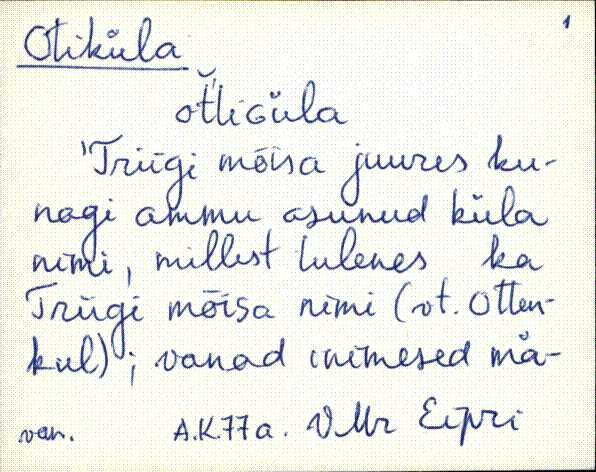 1
Otiküla
oťliGüla
'Triigi mõisa juures ku-
nagi ammu asunud küla
nimi, millest tulenes ka
Triigi mõisa nimi (vt. Otten-
kul)'; vanad inimesed mä-
van. A.K.77a. VMr Eipri